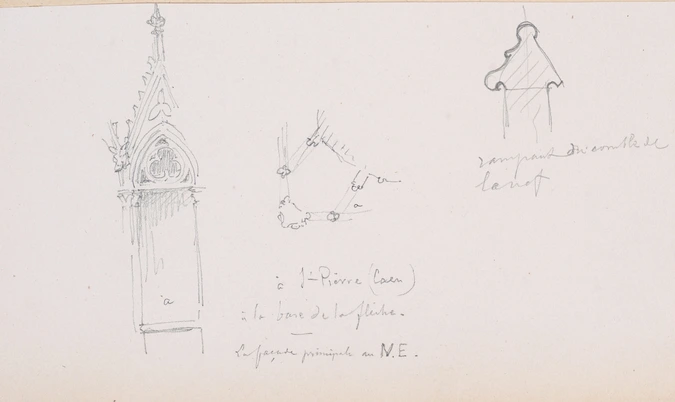 a
a
à St-Pierre (Caen)
à la base de la flèche.
La façade principale au N.E.
rampant du comble de
la nef